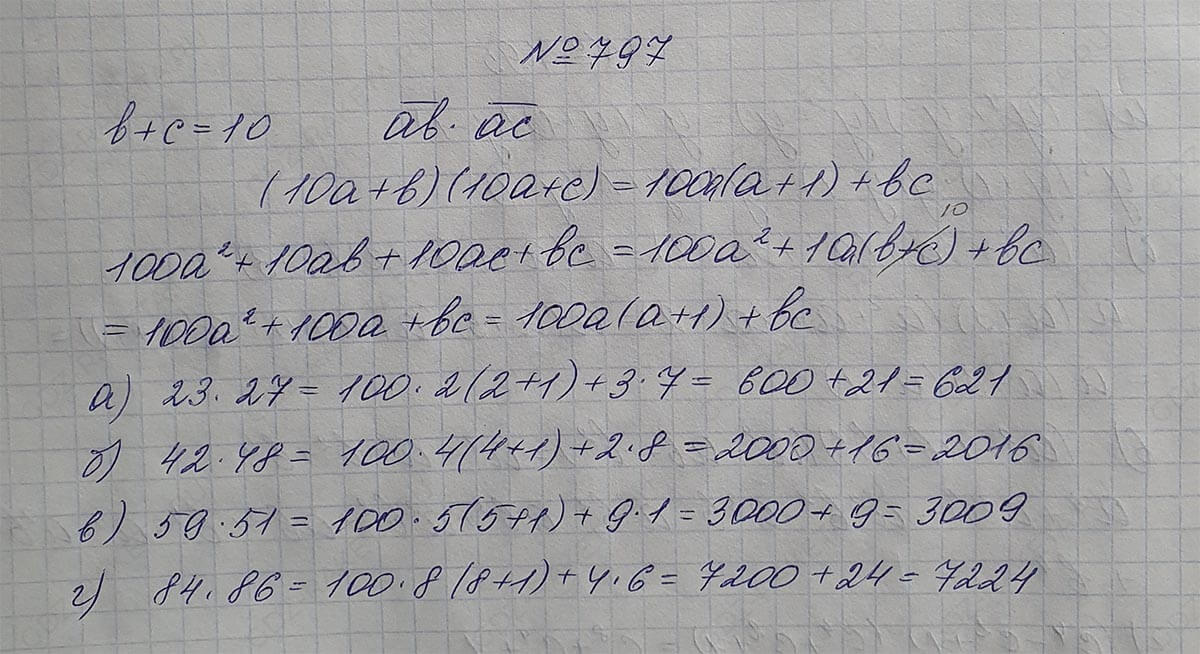 №797
b+c=10 a̅b̅ · a̅c̅
(10a+b)(10a+c)=100a(a+1)+bc
10
100a²+10ab+10ac+bc=100a²+10a(b+c)+bc
=100a²+100a+bc=100a(a+1)+bc
а) 23·27=100·2(2+1)+3·7=600+21=621
б) 42·48=100·4(4+1)+2·8=2000+16=2016
в) 59·51=100·5(5+1)+9·1=3000+9=3009
г) 84·86=100·8(8+1)+4·6=7200+24=7224